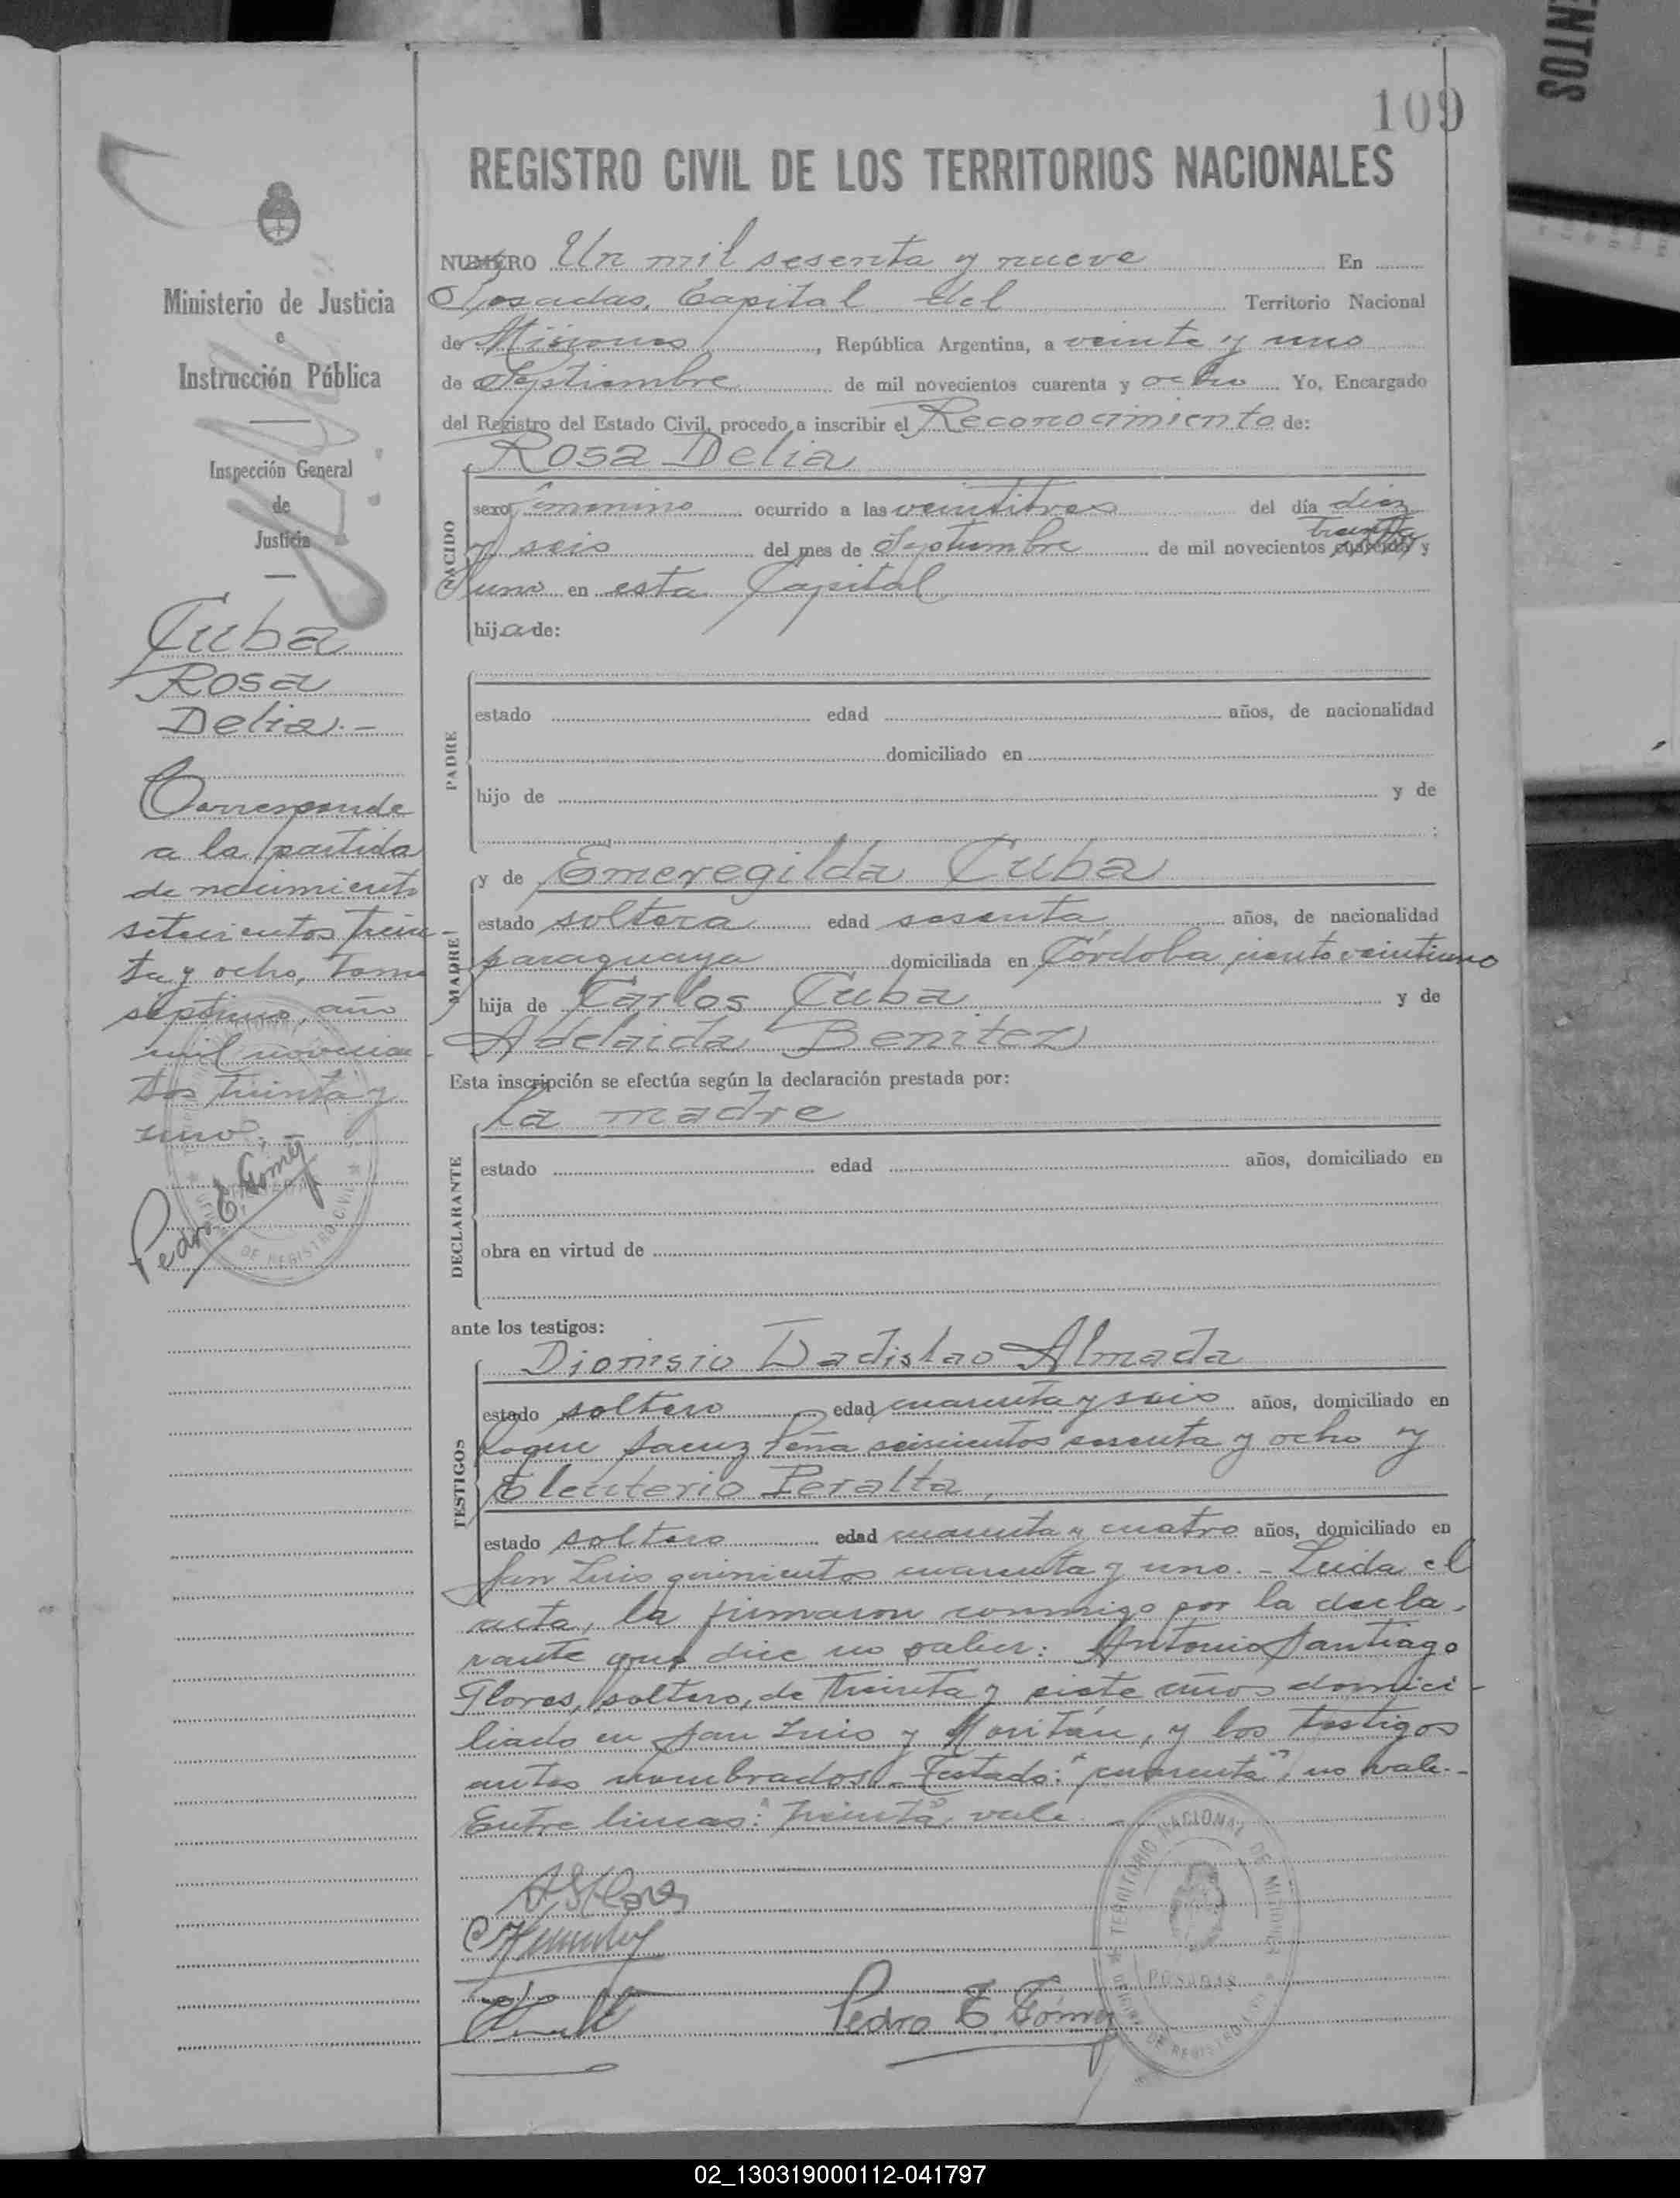 ENTOS
109
REGISTRO CIVIL DE LOS TERRITORIOS NACIONALES
Ministerio de Justicia
e
Instrucción Pública
Inspección General
de
Justicia
Cuba
Rosa
Delia.-
Corresponde
a la partida
de nacimiento
setecientos trein-
ta y ocho, tomo
septimo, año
mil novecien-
tos treinta y
uno.-
Pedro E. Gómez
DE REGISTRO CIVIL
NUMERO Un mil sesenta y nueve En
Posadas, Capital del Territorio Nacional
de Misiones, República Argentina, a veinte y uno
de Septiembre de mil novecientos cuarenta y ocho Yo, Encargado
del Registro del Estado Civil, procedo a inscribir el Reconocimiento de:
Rosa Delia
NACIDO
sexo femenino ocurrido a las veintitres del día diez
treinta
y seis del mes de Septiembre de mil novecientos cuarenta y
uno en esta Capital
hija de:
PADRE
estado edad años, de nacionalidad
domiciliado en
hijo de y de
:
MADRE
y de Emeregilda Cuba
estado soltera edad sesenta años, de nacionalidad
paraguaya domiciliada en Córdoba ciento veintiuno
hija de Carlos Cuba y de
Adelaida Benitez
Esta inscripción se efectúa según la declaración prestada por:
La madre
DECLARANTE
estado edad años, domiciliado en
obra en virtud de
ante los testigos:
TESTIGOS
Dionisio Ladislao Almada
estado soltero edad cuarenta y seis años, domiciliado en
Roque Saenz Peña seiscientos sesenta y ocho y
Eleuterio Peralta,
estado soltero edad cuarenta y cuatro años, domiciliado en
San Luis quinientos cuarenta y uno.- Leida el
acta, la firmaron conmigo por la decla-
rante que dice no saber: Antonio Santiago
Flores, soltero, de treinta y siete años domici-
liado en San Luis y Moritán, y los testigos
antes nombrados.- Testado: "cuarenta", no vale.-
Entre lineas: "treinta" vale.
ASFlores
Pedro E. Gómez
TERRITORIO NACIONAL DE MISIONES
POSADAS
DE REGISTRO CIVIL
02_130319000112-041797